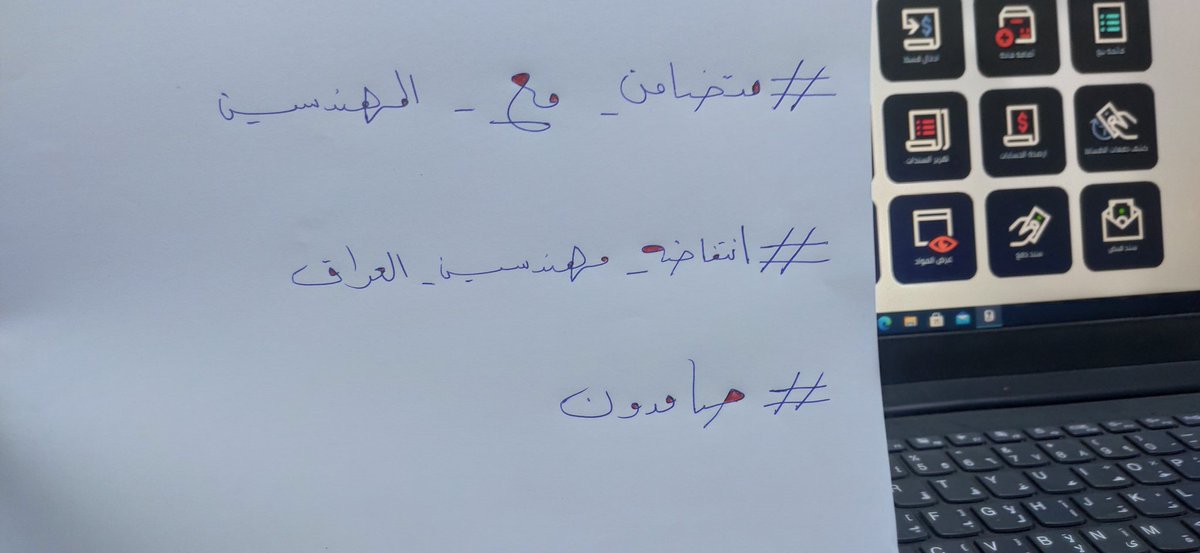 #متضامن_مع_المهندسين
#انتفاضه_مهندسين_العراق
#صامدون
ادخال قسط
اضافة فئة
قائمة بيع
تقرير السندات
ارصدة الحسابات
كشف دفعات الاقساط
عرض المواد
سند دفع
سند قبض
R T Y U I O P
F G H J K L
C V B N M